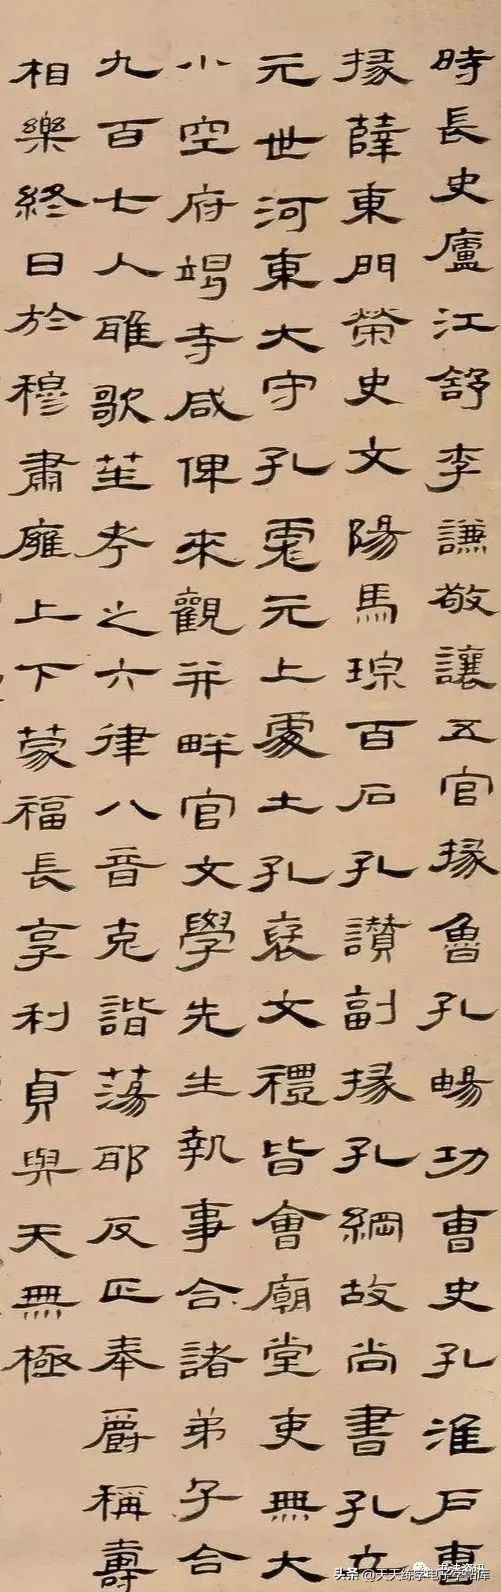 時長史廬江舒李謙敬讓五官掾魯孔暢功曹史孔淮戶曹
掾薛東門榮史文陽馬琮百石孔讃副掾孔綱故尚書孔立
元世河東大守孔彪元上處士孔褒文禮皆會廟堂吏無大
小空府竭寺咸俾來觀并畔官文學先生執事合諸弟子合
九百七人雅歌笙考之六律八音克諧蕩耶反正奉爵稱壽
相樂終日於穆肅雍上下蒙福長享利貞與天無極
头条@天天练字电子字帖库